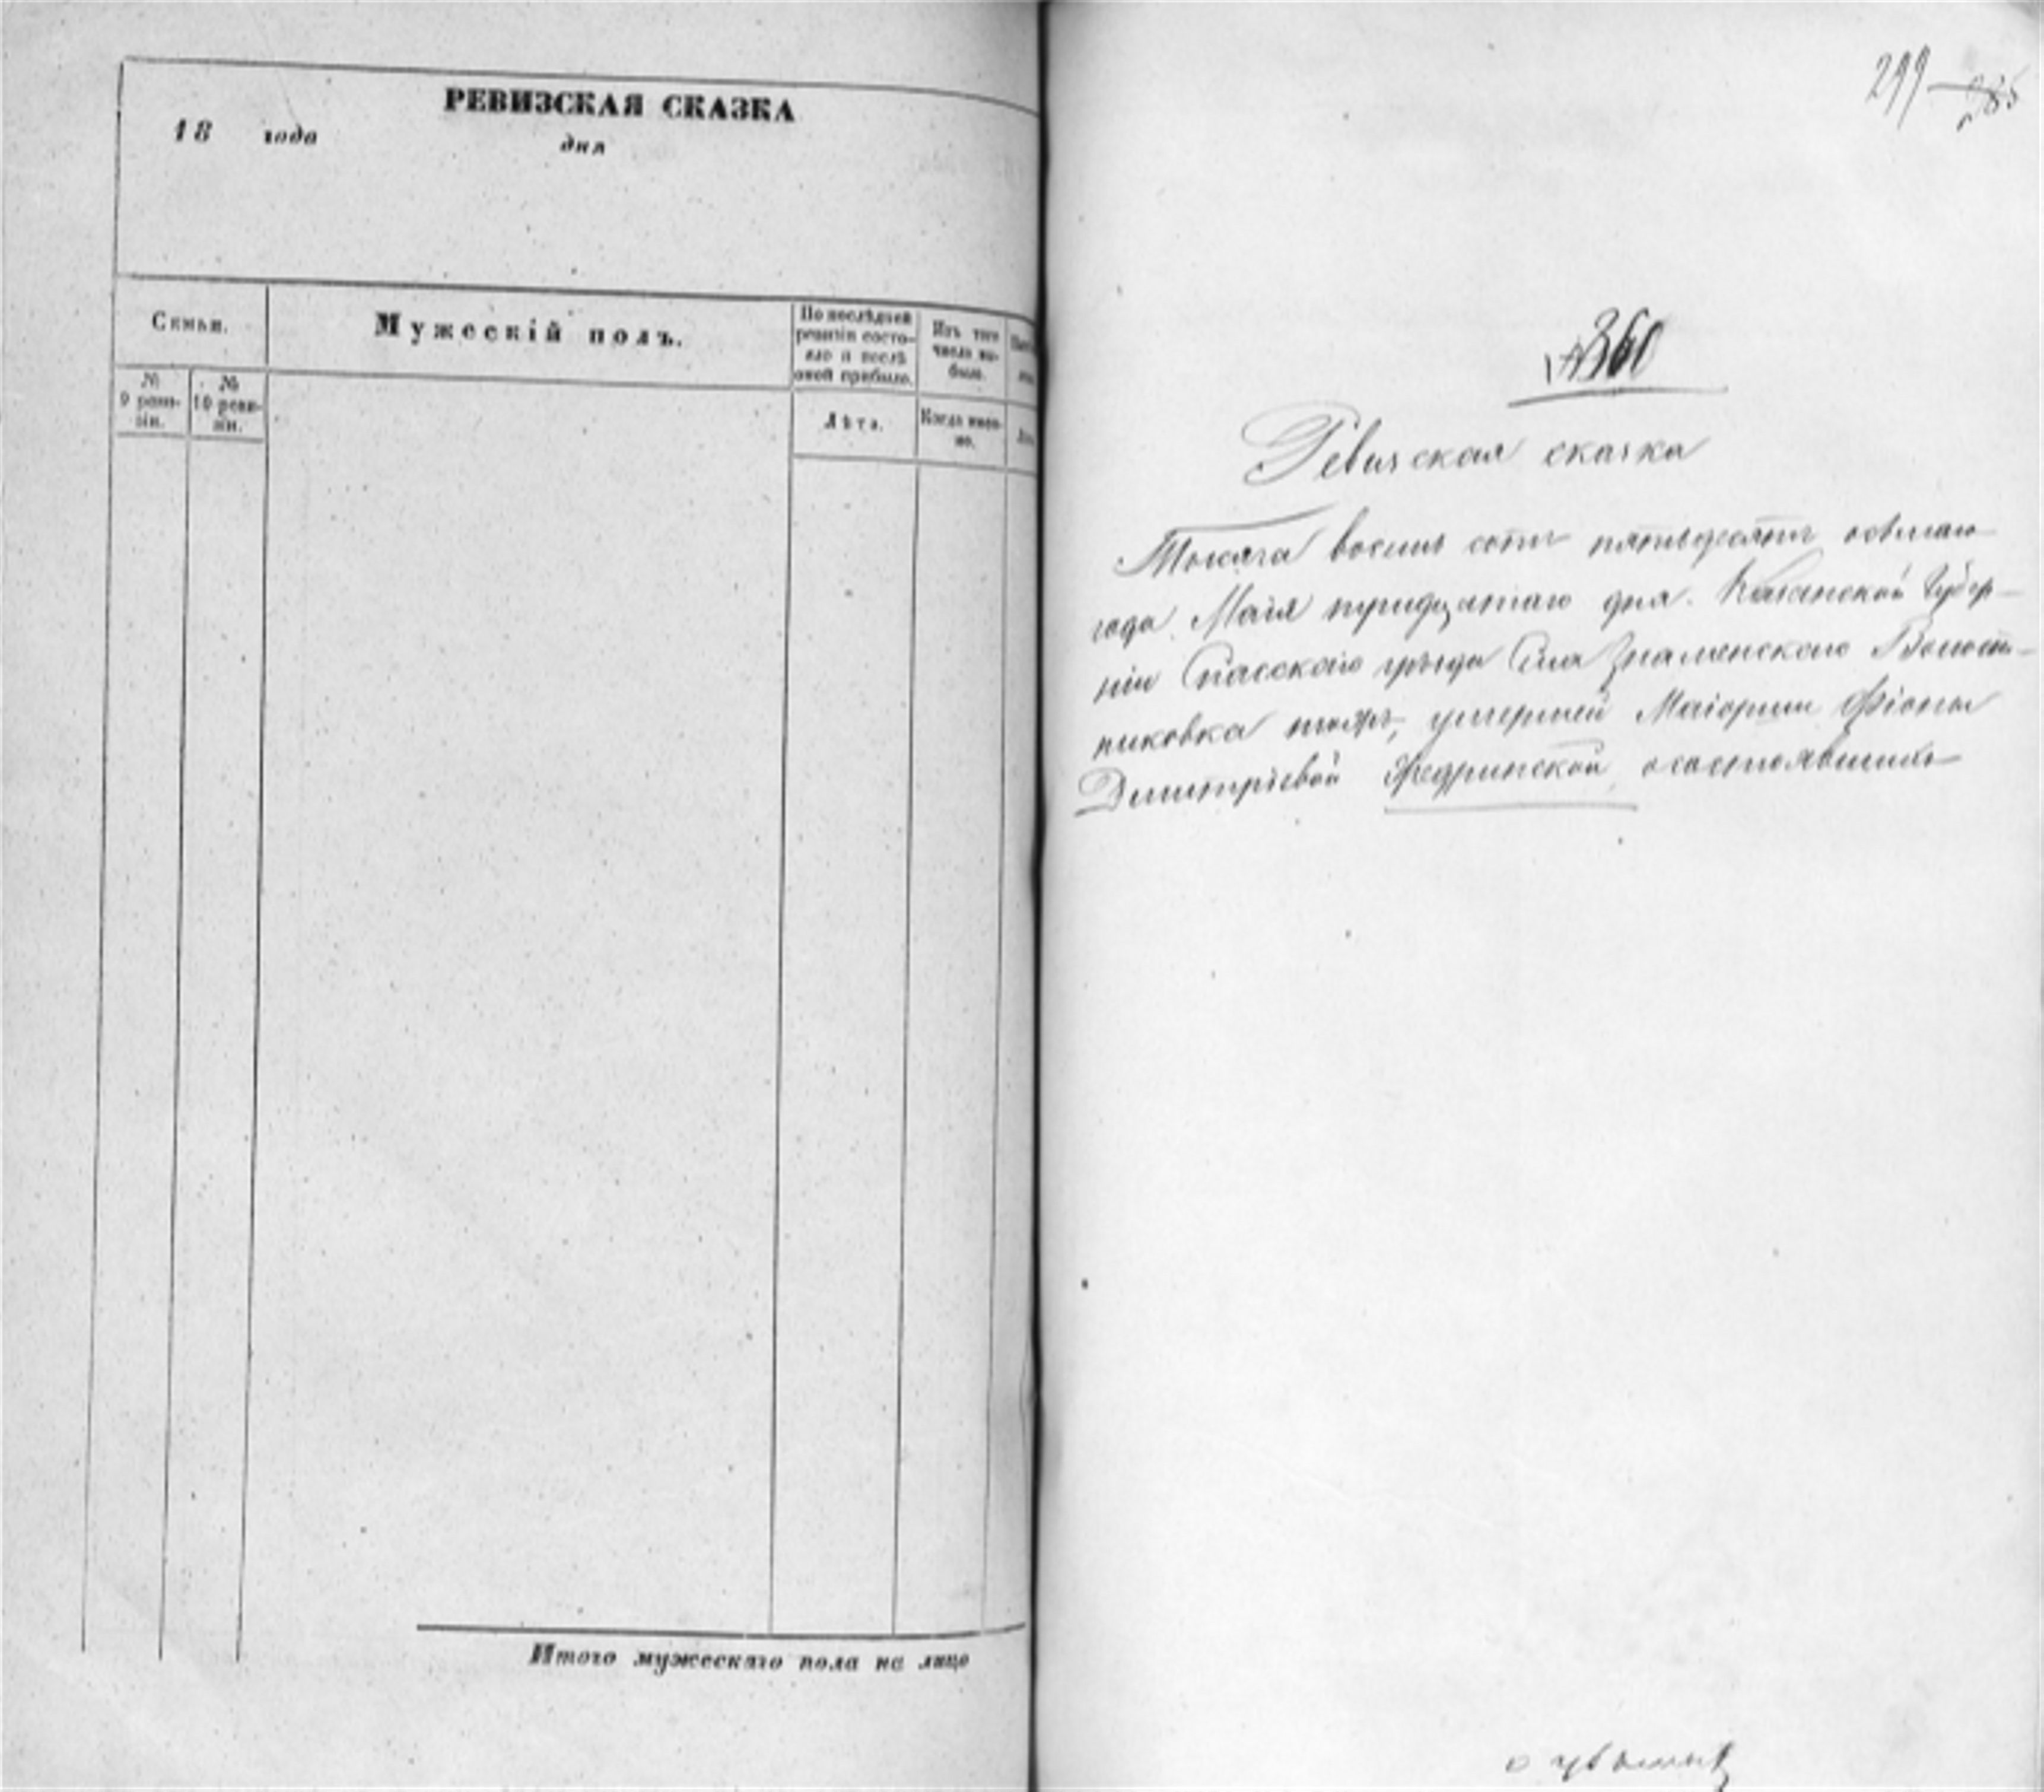 РЕВИЗСКАЯ СКАЗКА
18 года дня
Семьи.
Мужескій полъ.
По послѣдней
ревизіи состо-
яло и послѣ
оной прибыло.
Изъ того
числа вы-
было.
№
9 реви-
зіи.
№
10 реви-
зіи.
Лѣта.
Когда имен-
но.
Итого мужескаго пола на лицо
299
285
№360
Ревизская сказка
Тысяча восемь сотъ пятьдесятъ осьмаго
года Маія тридцатаго дня. Казанской Губер-
ніи Спасскаго уѣзда Села Знаменскаго
тожъ, умершей Маіорши Фіоны
Дмитріевой Жедринской, о состоявшихъ